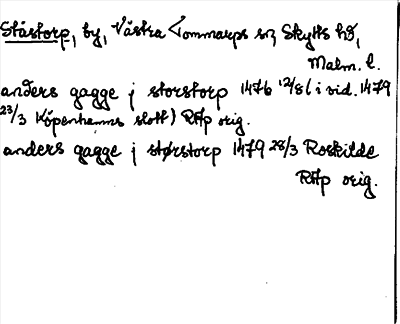 Ståstorp, by, Västra Tommarps sn, Skytts hd,
Malm. l.
anders gagge j storstorp 1476 12/8 (i vid. 1479
23/3 Köpenhamns slott) RAp orig.
anders gagge j størstorp 1479 23/3 Roskilde
RAp orig.